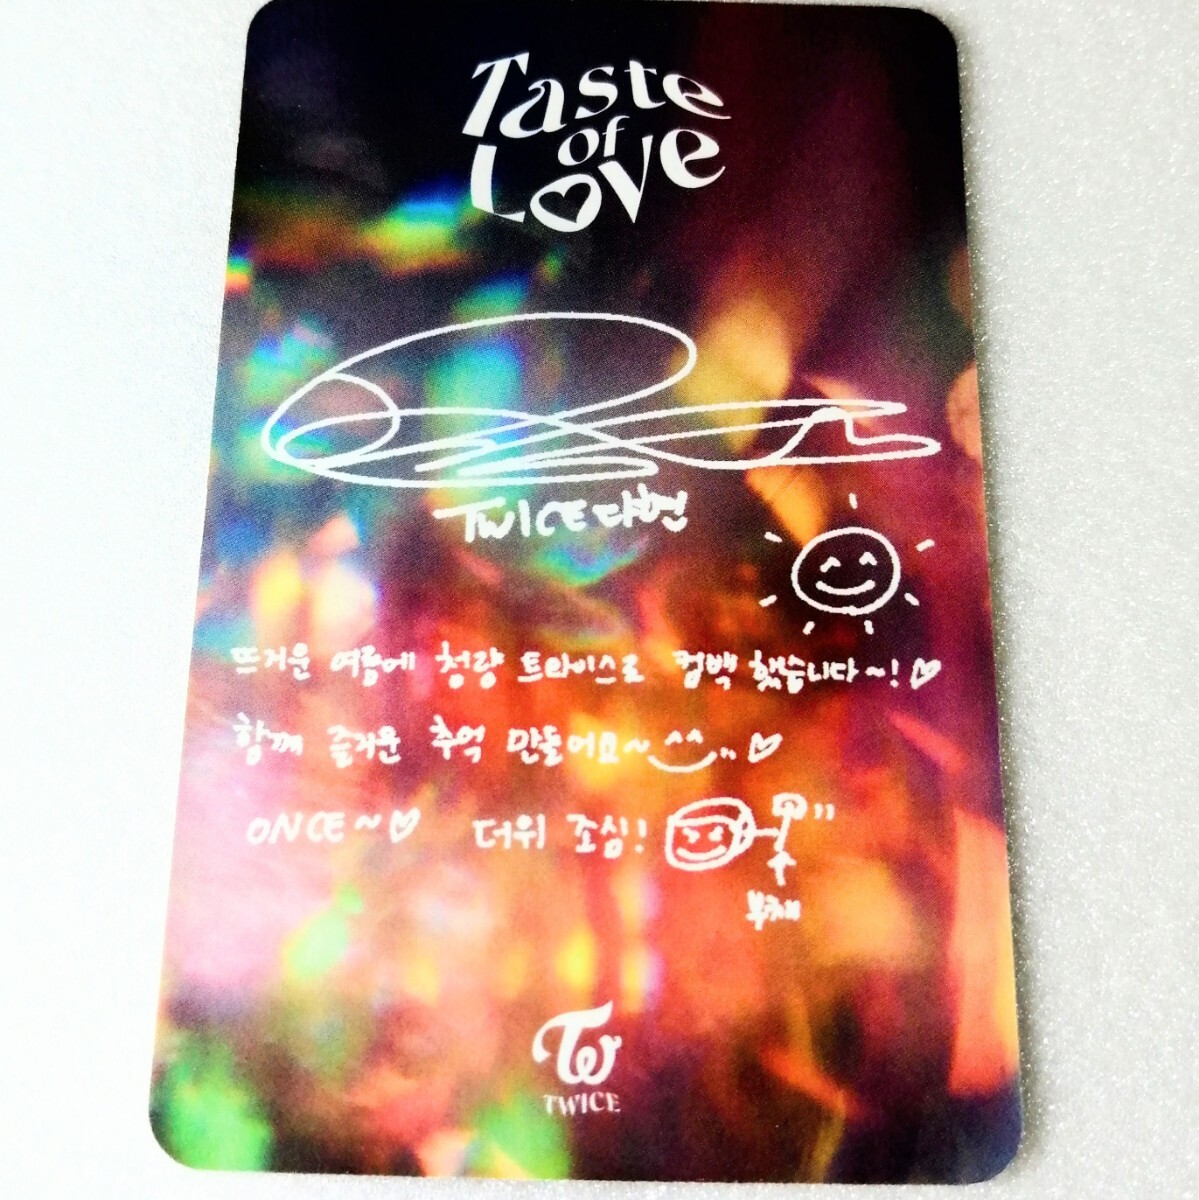 Taste
of
Love
TWICE 다현
뜨거운 여름에 청량 트와이스로 컴백 했습니다~!♡
함께 즐거운 추억 만들어요~^^..♡
ONCE~♡ 더위 조심!
부채
TWICE